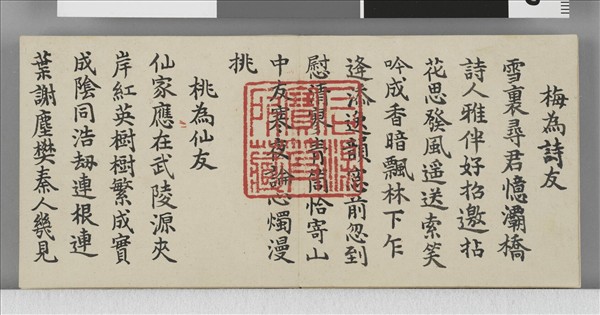 梅為詩友
雪裏尋君憶灞橋
詩人雅伴好招邀拈
花思發風遥送索笑
吟成香暗飄林下乍
逢添逸韻前忽到
慰清寥青筒恰寄山
中友寒夜論心燭漫
挑
桃為仙友
仙家應在武陵源夾
岸紅英樹樹繁成實
成陰同浩劫連根連
葉謝塵樊秦人幾見